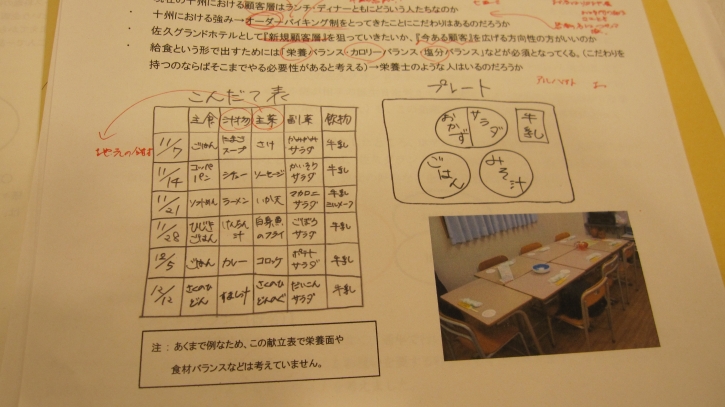 現在の十州における顧客層はランチ・ディナーともにどういう人たちなのか
・ 十州における強み→オーダーバイキング制をとってきたことにこだわりはあるのだろうか
・ 佐久グランドホテルとして『新規顧客層』を狙っていきたいか、『今ある顧客』を広げる方向性の方がいいのか
・ 給食という形で出すためには「栄養バランス・カロリーバランス・塩分バランス」などが必須となってくる。（こだわりを
持つのならばそこまでやる必要性があると考える）→栄養士のような人はいるのだろうか
こんだて表
主食 汁物 主菜 副菜 飲物
11/7 ごはん たまごスープ さけ サラダ 牛乳
11/14 コッペパン シチュー ソーセージ かいそうサラダ 牛乳
11/21 ソフトめん ラーメン いか天 マカロニサラダ 牛乳 ミルメーク
11/28 ひじきごはん けんちん汁 白身魚のフライ ごぼうサラダ 牛乳
12/5 ごはん カレー コロッケ ポテトサラダ 牛乳
12/12 すまし汁 だいこんサラダ 牛乳
プレート
おかず サラダ 牛乳
ごはん みそ汁
注：あくまで例なため、この献立表で栄養面や
食材バランスなどは考えていません。